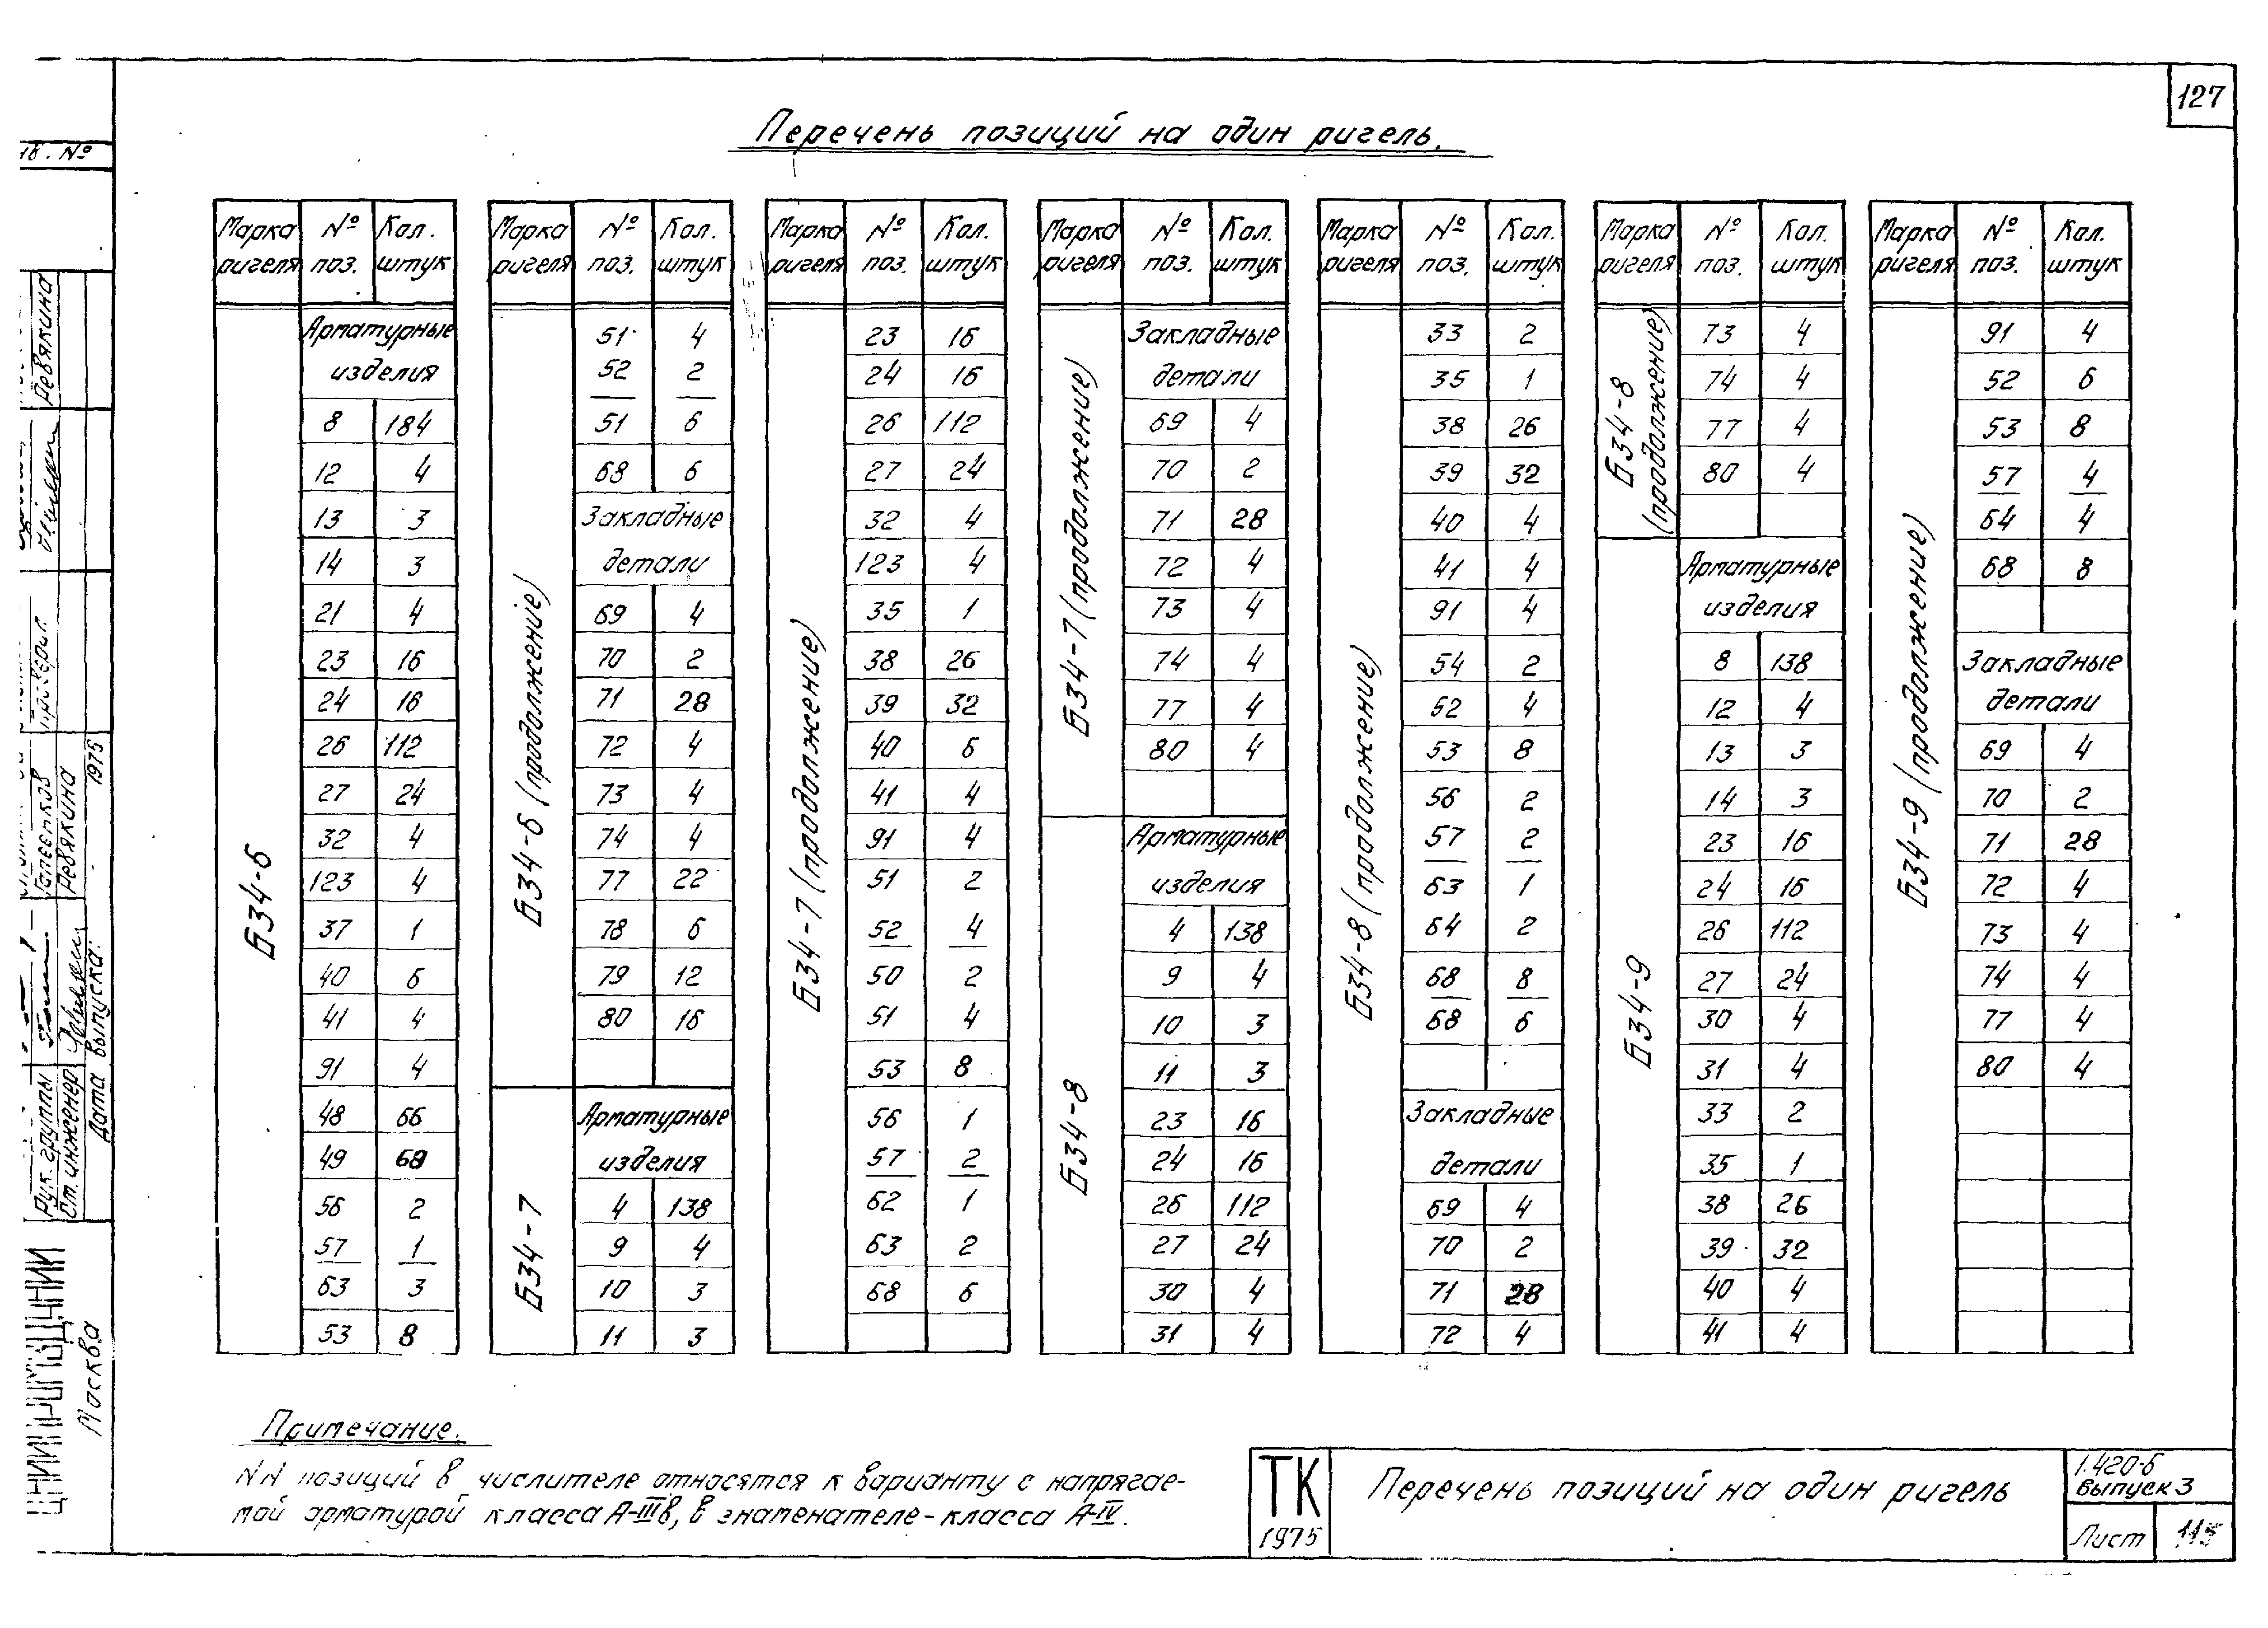 127
Перечень позиций на один ригель.
Марка ригеля | № поз. | Кол. штук
Б34-6
Арматурные
изделия
8 184
12 4
13 3
14 3
21 4
23 16
24 16
26 112
27 24
32 4
123 4
37 1
40 6
41 4
91 4
48 66
49 68
56 2
57 1
63 3
53 8
Марка ригеля | № поз. | Кол. штук
Б34-6 (продолжение)
51 4
52 2
51 6
68 6
Закладные
детали
69 4
70 2
71 28
72 4
73 4
74 4
77 22
78 6
79 12
80 16
Б34-7
Арматурные
изделия
4 138
9 4
10 3
11 3
Марка ригеля | № поз. | Кол. штук
Б34-7 (продолжение)
23 16
24 16
26 112
27 24
32 4
123 4
35 1
38 26
39 32
40 6
41 4
91 4
51 2
52 4
50 2
51 4
53 8
56 1
57 2
62 1
63 2
68 6
Марка ригеля | № поз. | Кол. штук
Б34-7 (продолжение)
Закладные
детали
69 4
70 2
71 28
72 4
73 4
74 4
77 4
80 4
Б34-8
Арматурные
изделия
4 138
9 4
10 3
11 3
23 16
24 16
26 112
27 24
30 4
31 4
Марка ригеля | № поз. | Кол. штук
Б34-8 (продолжение)
33 2
35 1
38 26
39 32
40 4
41 4
91 4
54 2
52 4
53 8
56 2
57 2
63 1
64 2
68 8
68 6
Закладные
детали
69 4
70 2
71 28
72 4
Марка ригеля | № поз. | Кол. штук
Б34-8
(продолжение)
73 4
74 4
77 4
80 4
Б34-9
Арматурные
изделия
8 138
12 4
13 3
14 3
23 16
24 16
26 112
27 24
30 4
31 4
33 2
35 1
38 26
39 32
40 4
41 4
Марка ригеля | № поз. | Кол. штук
Б34-9 (продолжение)
91 4
52 6
53 8
57 4
64 4
68 8
Закладные
детали
69 4
70 2
71 28
72 4
73 4
74 4
77 4
80 4
Примечание.
NN позиций в числителе относятся к варианту с напрягае-
мой арматурой класса А-IIIв, в знаменателе - класса А-IV.
ТК
1975
Перечень позиций на один ригель
1.420-6
выпуск 3
Лист 115
Ревякина
Проверил
Рук. группы
Ст. инженер Ревякина
Дата выпуска: 1975
ЦНИИПРОМЗДАНИЙ
Москва